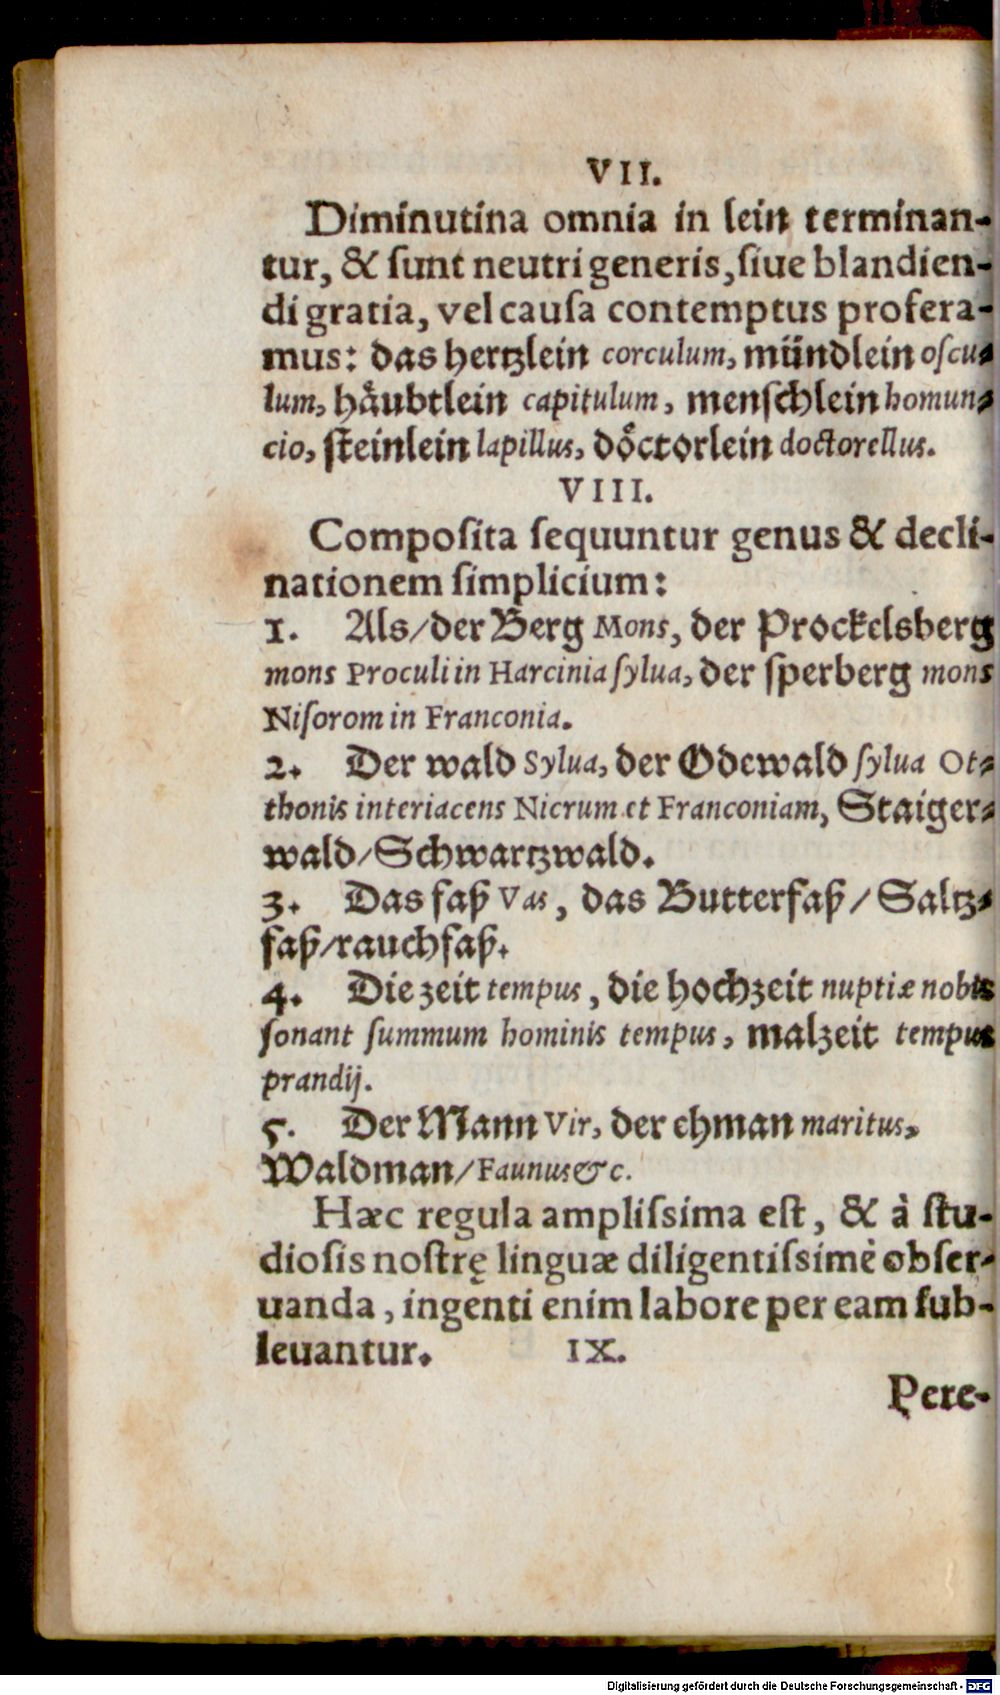 VII.
Diminutina omnia in lein terminan-
tur, & ſunt neutri generis, ſiue blandien-
di gratia, vel cauſa contemptus profera-
mus: das hertzlein corculum, mündlein oſcu-
lum, haͤubtlein capitulum, menſchlein homun-
cio, ſteinlein lapillus, doͤctorlein doctorellus.
VIII.
Compoſita ſequuntur genus & decli-
nationem ſimplicium:
1. Als/der Berg Mons, der Prockelsberg
mons Proculi in Harcinia ſylua, der ſperberg mons
Niſorom in Franconia.
2. Der wald Sylua, der Odewald ſylua Ot-
thonis interiacens Nicrum et Franconiam, Staiger-
wald/Schwartzwald.
3. Das faß Vas, das Butterfaß/ Saltz-
faß/rauchfaß.
4. Die zeit tempus, die hochzeit nuptiæ nobis
ſonant ſummum hominis tempus, malzeit tempus
prandij.
5. Der Mann Vir, der ehman maritus,
Waldman/Faunus &c.
Hæc regula ampliſsima eſt, & à ſtu-
dioſis noſtrę linguæ diligentiſsimè obſer-
uanda, ingenti enim labore per eam ſub-
leuantur. IX.
Pere-
Digitalisierung gefördert durch die Deutsche Forschungsgemeinschaft - DFG